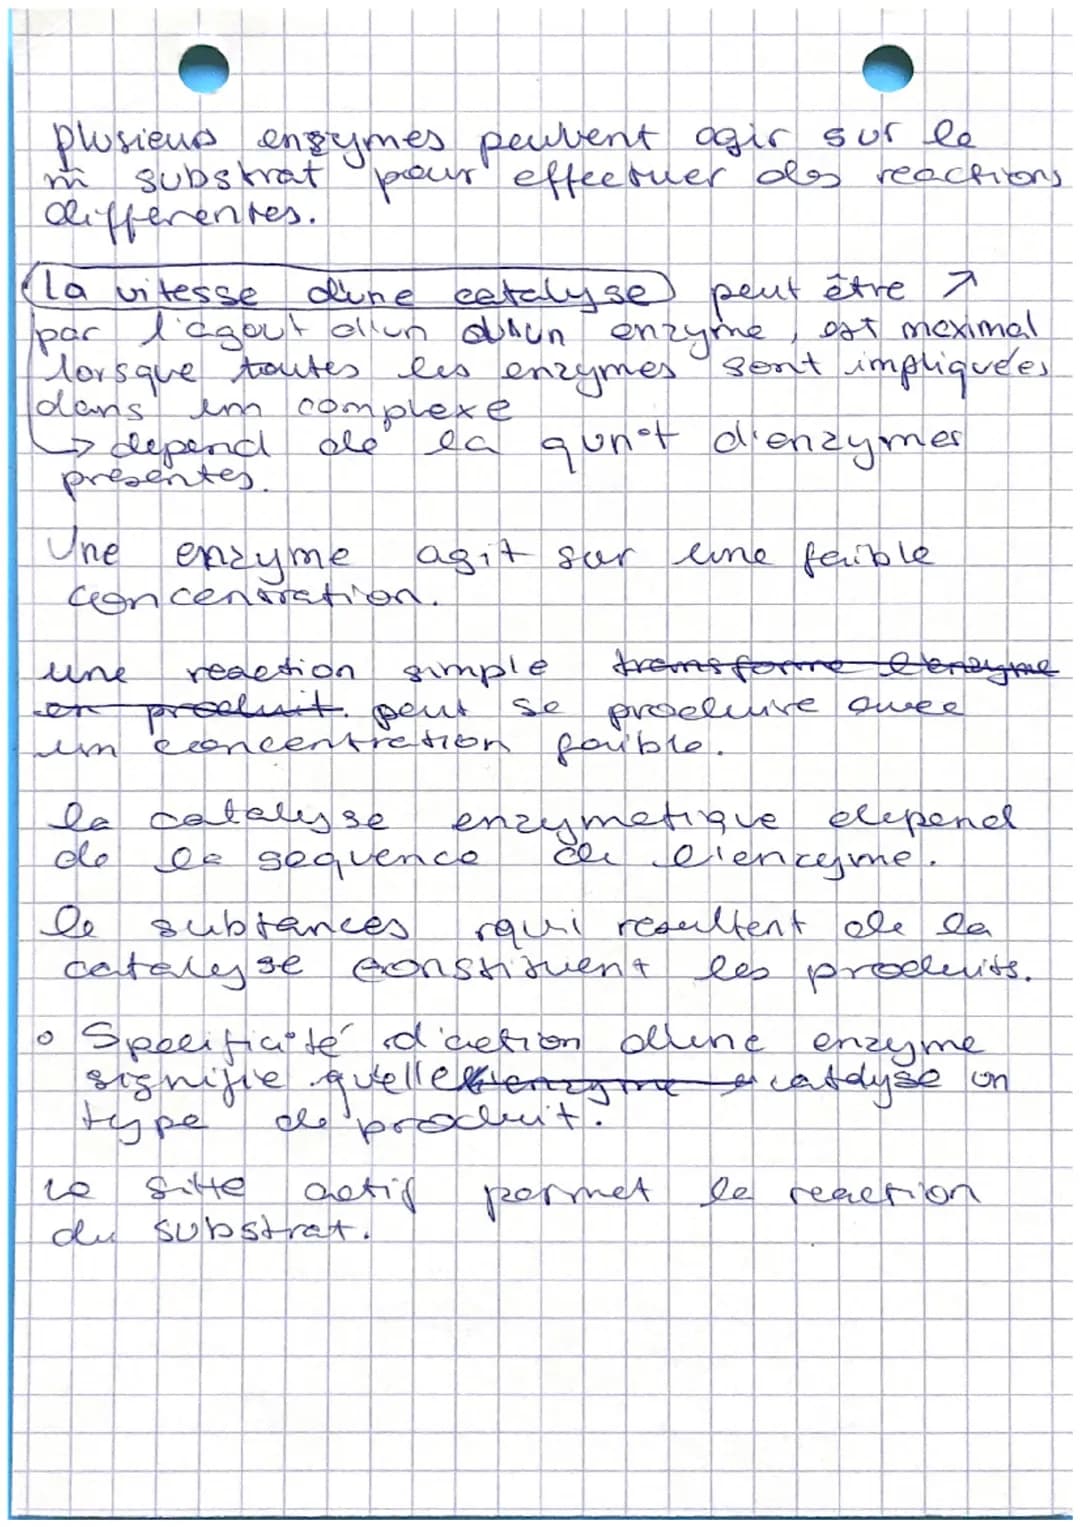 plusieurs enzymes peuvent agir sur le
m̄ substrat pour effectuer des reactions
differentes.
La vitesse d'une catalyse peut être ↗
par l'agout d'un enzyme, est maximal
lorsque toutes les enzymes sont impliquées
dans um complexe
↳ depend de la qunot d'enzymes
présentes.
Une enzyme agit sur une faible
concentration.
une reaction simple transforme l'enzyme
en produit. peut se produire avec
um concentration faible.
la catalysse enzymatique depend
de la sequence de l'enzyme.
le subtances qui resultent de la
catalyse constituent les produits.
o Specificité d'action d'une enzyme
signifie qu'elle l'enzyme catalyse un
type de produit.
Le sitte actif permet la reaction
du substrat.